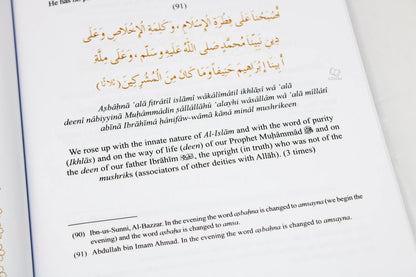 He has no p
(91)
أَصْبَحْنَا عَلَى فِطْرَةِ الْإِسْلَامِ ، وَكَلِمَةِ الْإِخْلَاصِ وَعَلَى
دِينِ نَبِيِّنَا مُحَمَّدٍ صَلَى اللهُ عَلَيْهِ وَسَلَّم ، وَعَلَى مِلَّةِ
أَبِينَا إِبْرَاهِيمَ حَنِيفاً وَمَا كَانَ مِنَ الْمُشْرِكِينَ (ثلاثاً)
Aṣbaḥnā ʿalā fiṭrātil islāmi wākālimātil ikhlāṣi wā ʿalā
deeni nābiyyinā Muḥāmmādin ṣāllāllāhū ʿalayhi wāsāllām wā ʿalā millāti
abīnā Ibrāhīmā ḥānifāw-wāmā kānā mināl mushrikeen
We rose up with the innate nature of Al-Islam and with the word of purity
(Ikhlās) and on the way of life (deen) of our Prophet Muḥāmmād ﷺ and on
the deen of our father Ibrāhīm, the upright (in truth) who was not of the
mushriks (associators of other deities with Allāh). (3 times)
(90) Ibn-us-Sunni, Al-Bazzar. In the evening the word aṣbaḥna is changed to amsayna (we begin the
evening) and the word aṣbaḥa is changed to amsa.
(91) Abdullah bin Imam Ahmad. In the evening the word aṣbaḥna is changed to amsayna.